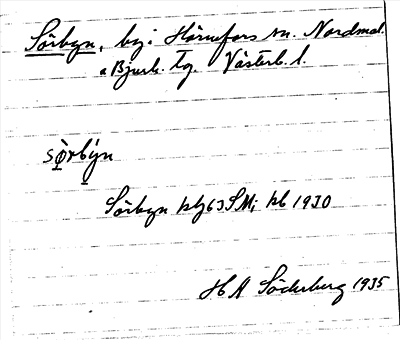 Sörbyn, by i Hörnefors sn. Nordmal.
o Bjurh. tg. Västerb. l.
sörbýn
Sörbyn kbg 63 SMi kb 1930
H A Söderberg 1935